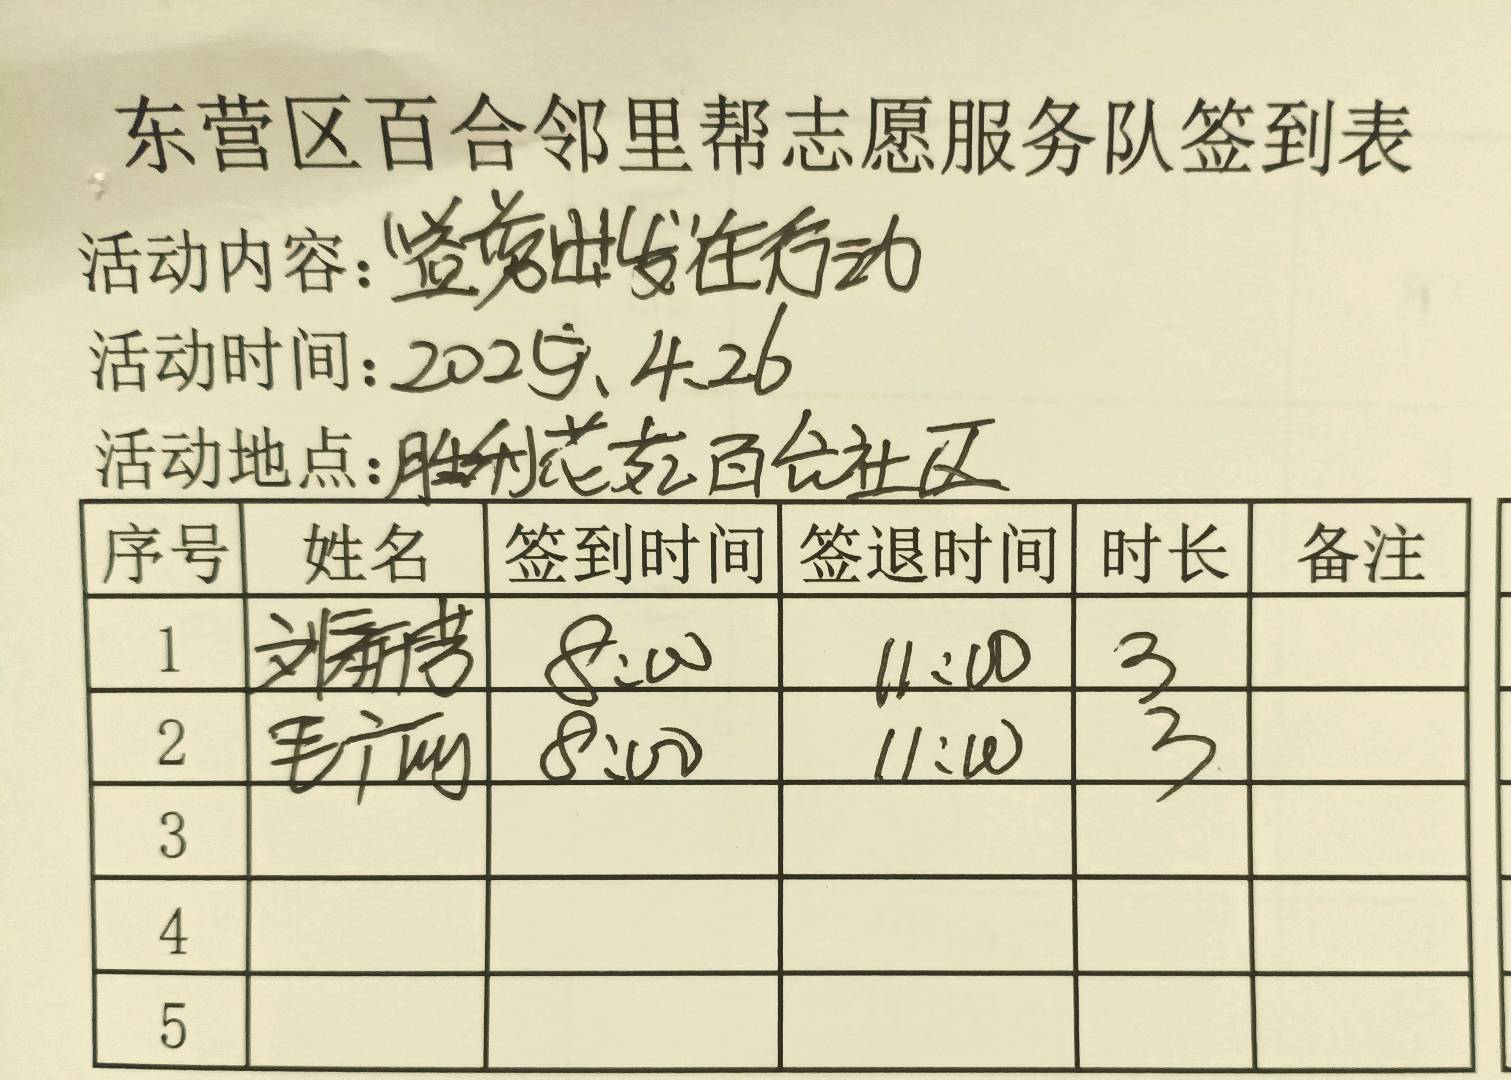 东营区百合邻里帮志愿服务队签到表
活动内容：益剪出发在行动
活动时间：2025年、4.26
活动地点：胜利花苑百合社区
序号 姓名 签到时间 签退时间 时长 备注
1 刘新芳 8:00 11:00 3
2 毛广丽 8:00 11:00 3
3
4
5